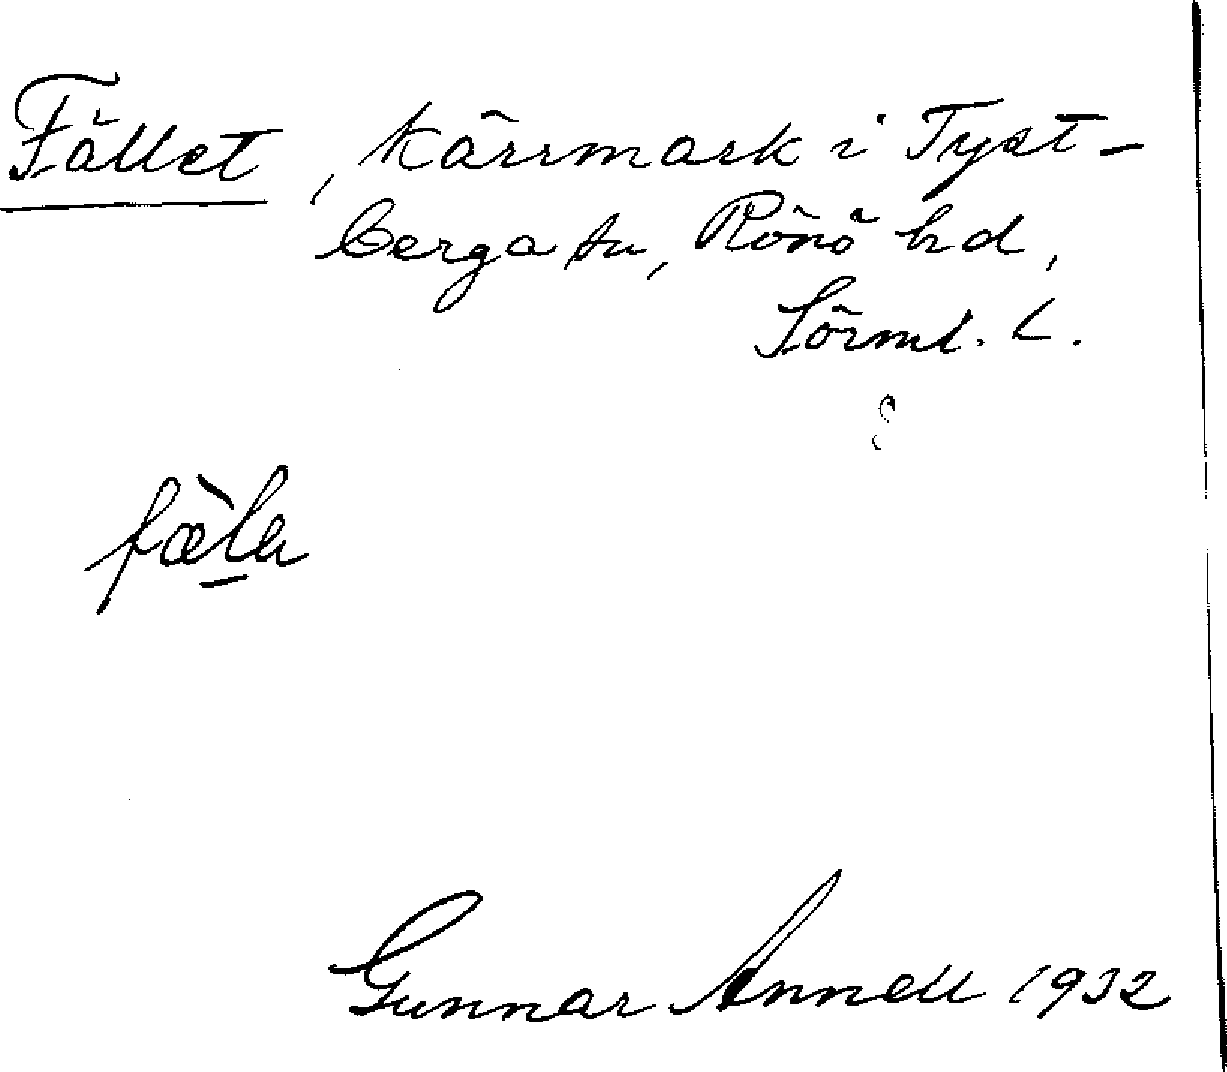 Fället, kärrmark i Tyst-
berga sn, Rönö hd,
Sörml. L.
fæ̀la
Gunnar Annell 1932